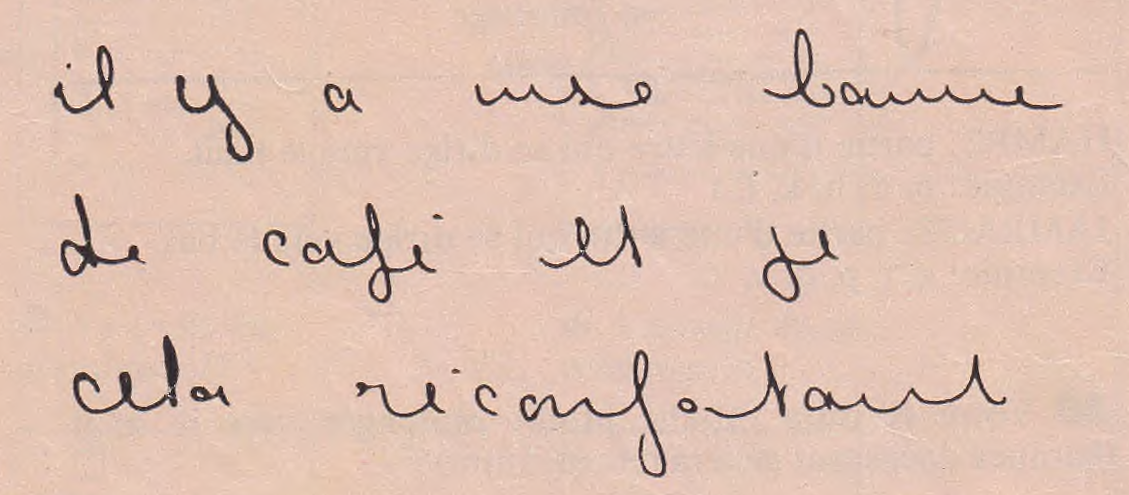 il y a une bonne
de café et je
cela réconfortant